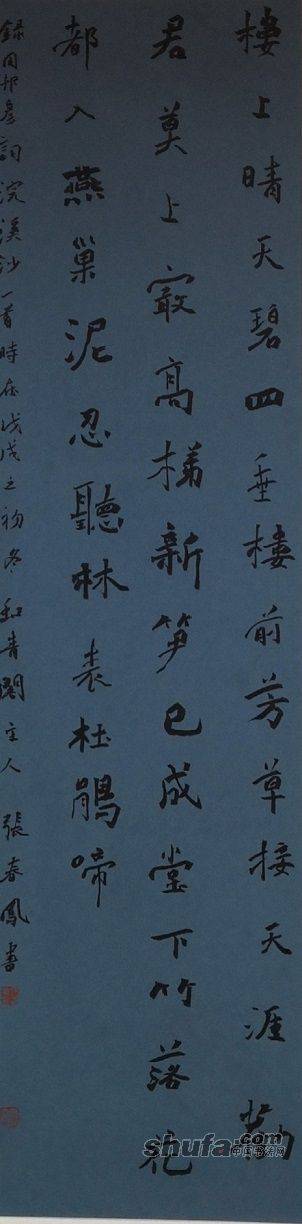 樓上晴天碧四垂樓前芳草接天涯勸
君莫上最高梯新筍已成堂下竹落花
都入燕巢泥忍聽林表杜鵑啼
錄周邦彥詞浣溪沙一首時在戊戌之初冬和青閣主人張春鳳書
shufa.com
中国书法网